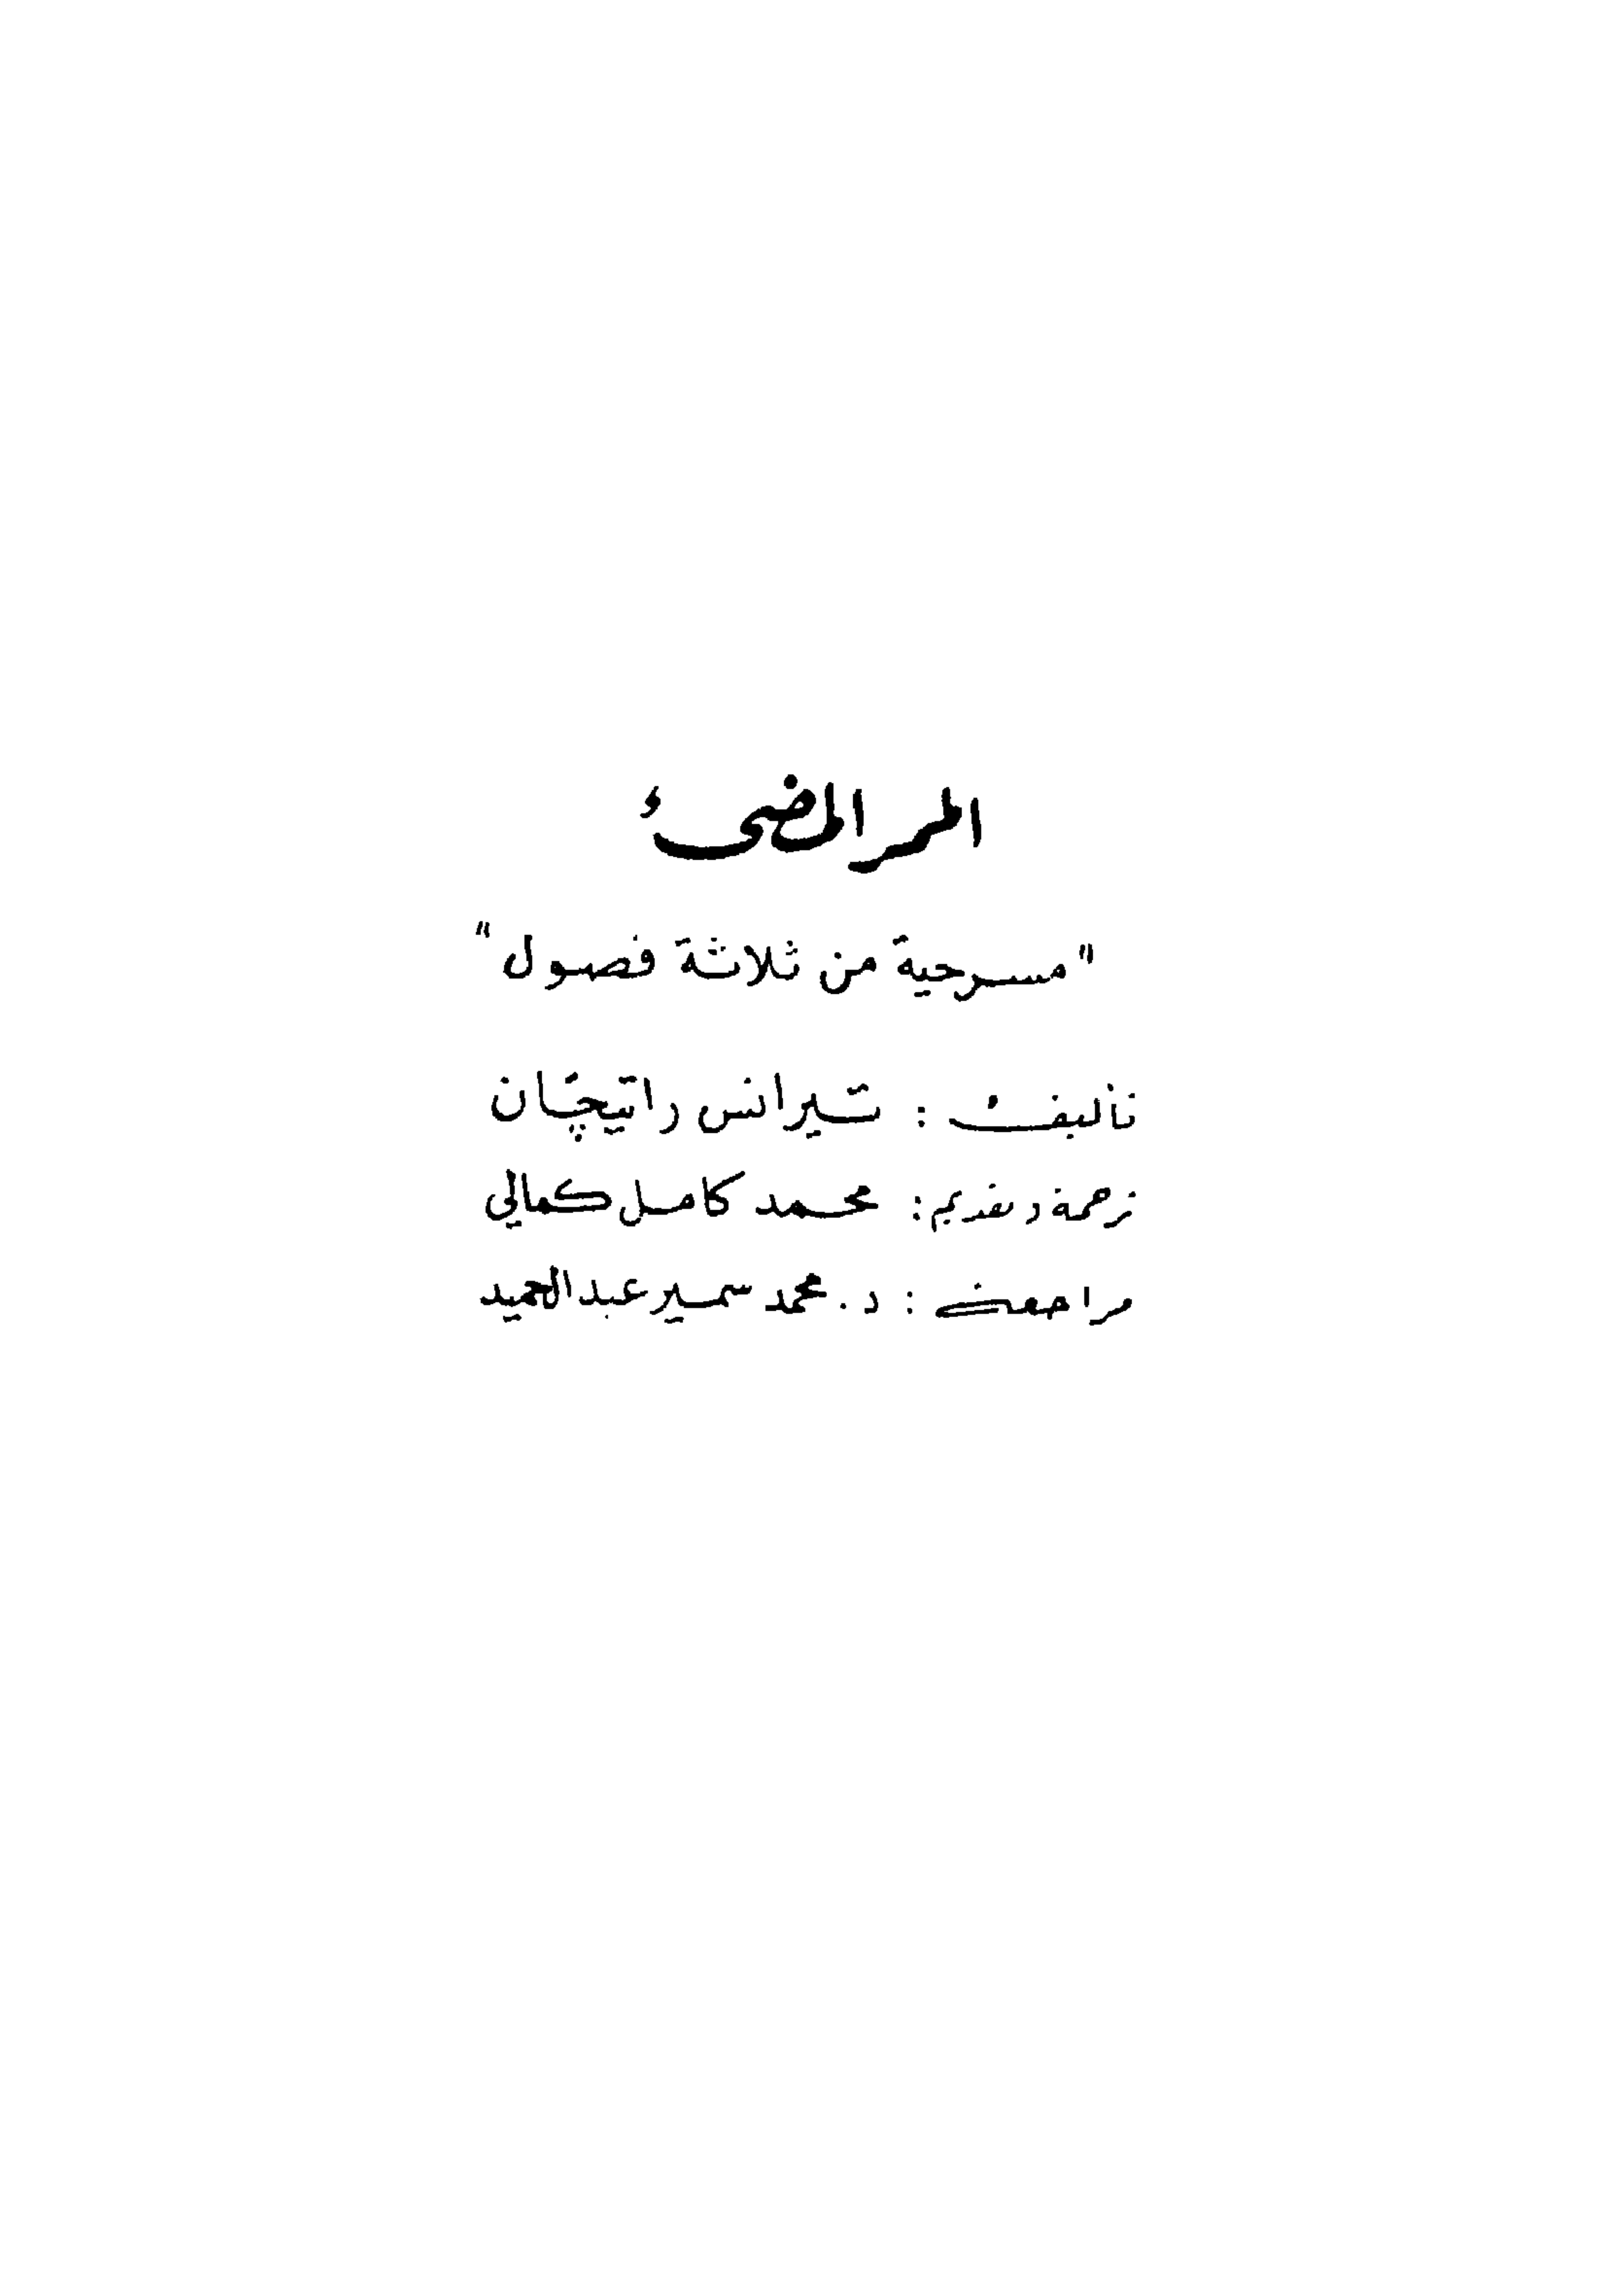 الممر المضيء
"مسرحية من ثلاثة فصول"
تأليف : تيرانس راتيجان
ترجمة وتقديم : محمد كامل كمالي
مراجعة : د. محمد سمير عبد الحميد